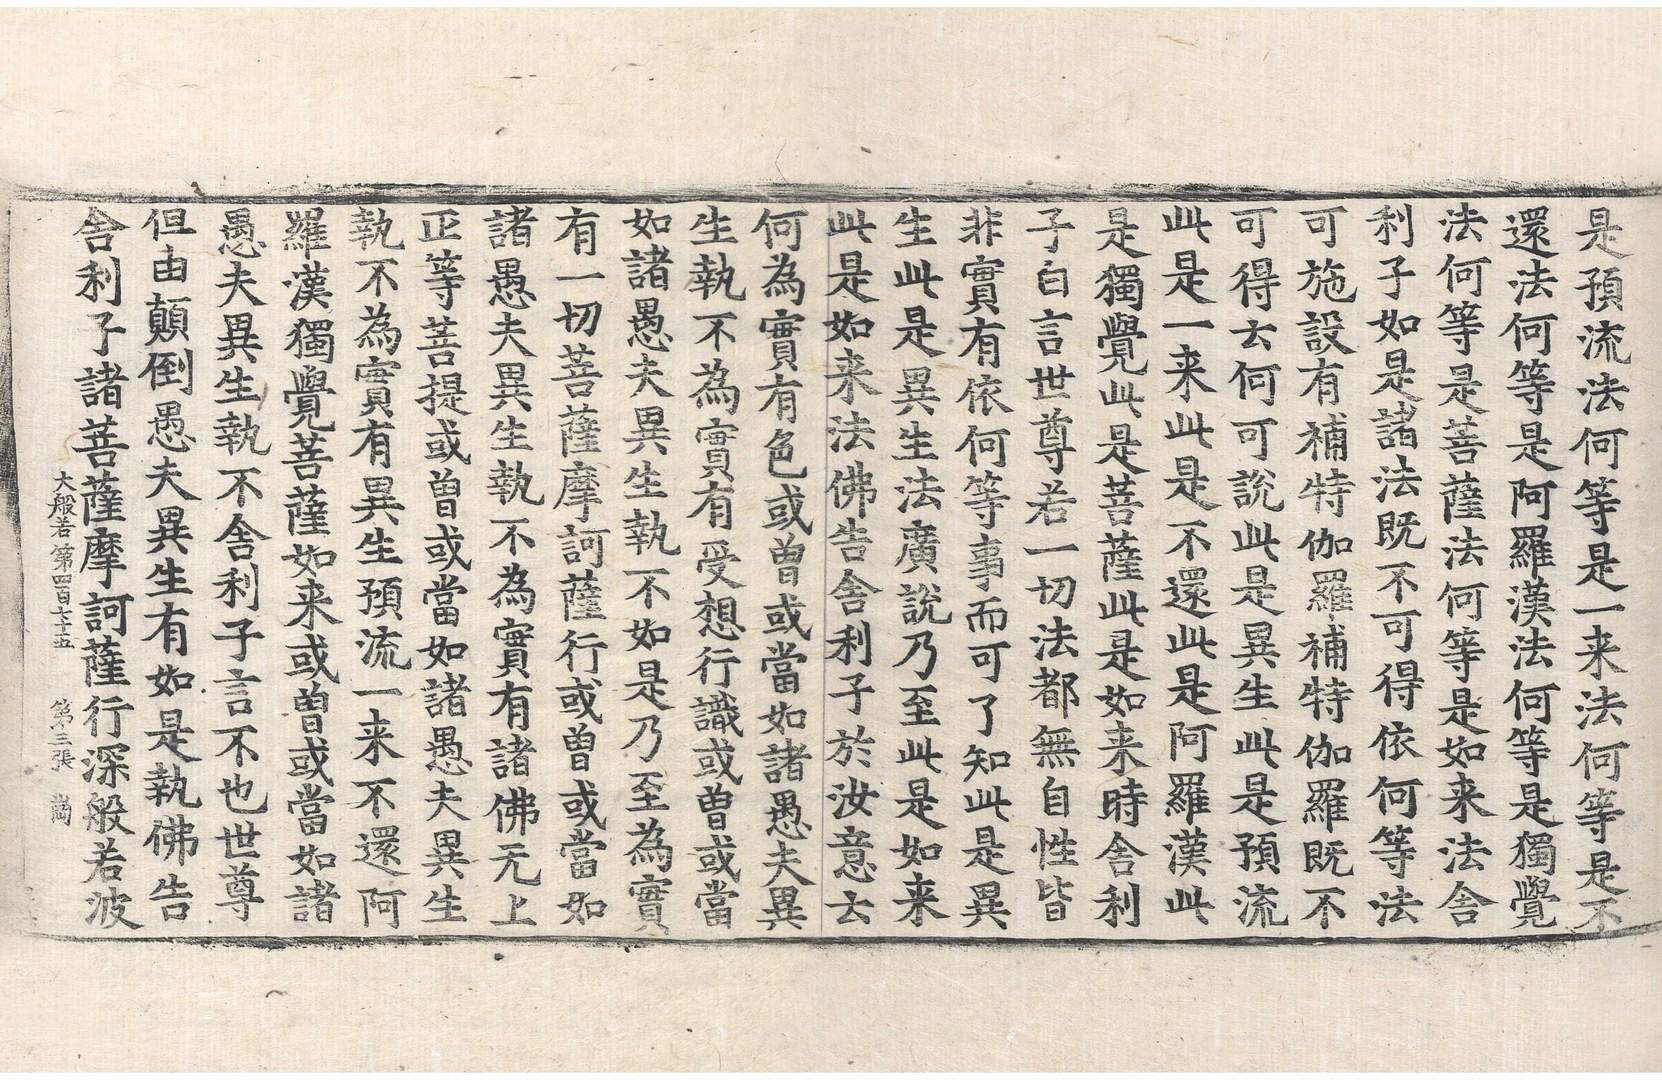 是預流法何等是一来法何等是不
還法何等是阿羅漢法何等是獨覺
法何等是菩薩法何等是如来法舍
利子如是諸法既不可得依何等法
可施設有補特伽羅補特伽羅既不
可得云何可說此是異生此是預流
此是一来此是不還此是阿羅漢此
是獨覺此是菩薩此是如来時舍利
子白言世尊若一切法都無自性皆
非實有依何等事而可了知此是異
生此是異生法廣說乃至此是如来
此是如来法佛告舍利子於汝意云
何為實有色或曾或當如諸愚夫異
生執不為實有受想行識或曾或當
如諸愚夫異生執不如是乃至為實
有一切菩薩摩訶薩行或曾或當如
諸愚夫異生執不為實有諸佛无上
正等菩提或曾或當如諸愚夫異生
執不為實有異生預流一来不還阿
羅漢獨覺菩薩如来或曾或當如諸
愚夫異生執不舍利子言不也世尊
但由顛倒愚夫異生有如是執佛告
舍利子諸菩薩摩訶薩行深般若波
大般若第四百七十五 第三張 崗